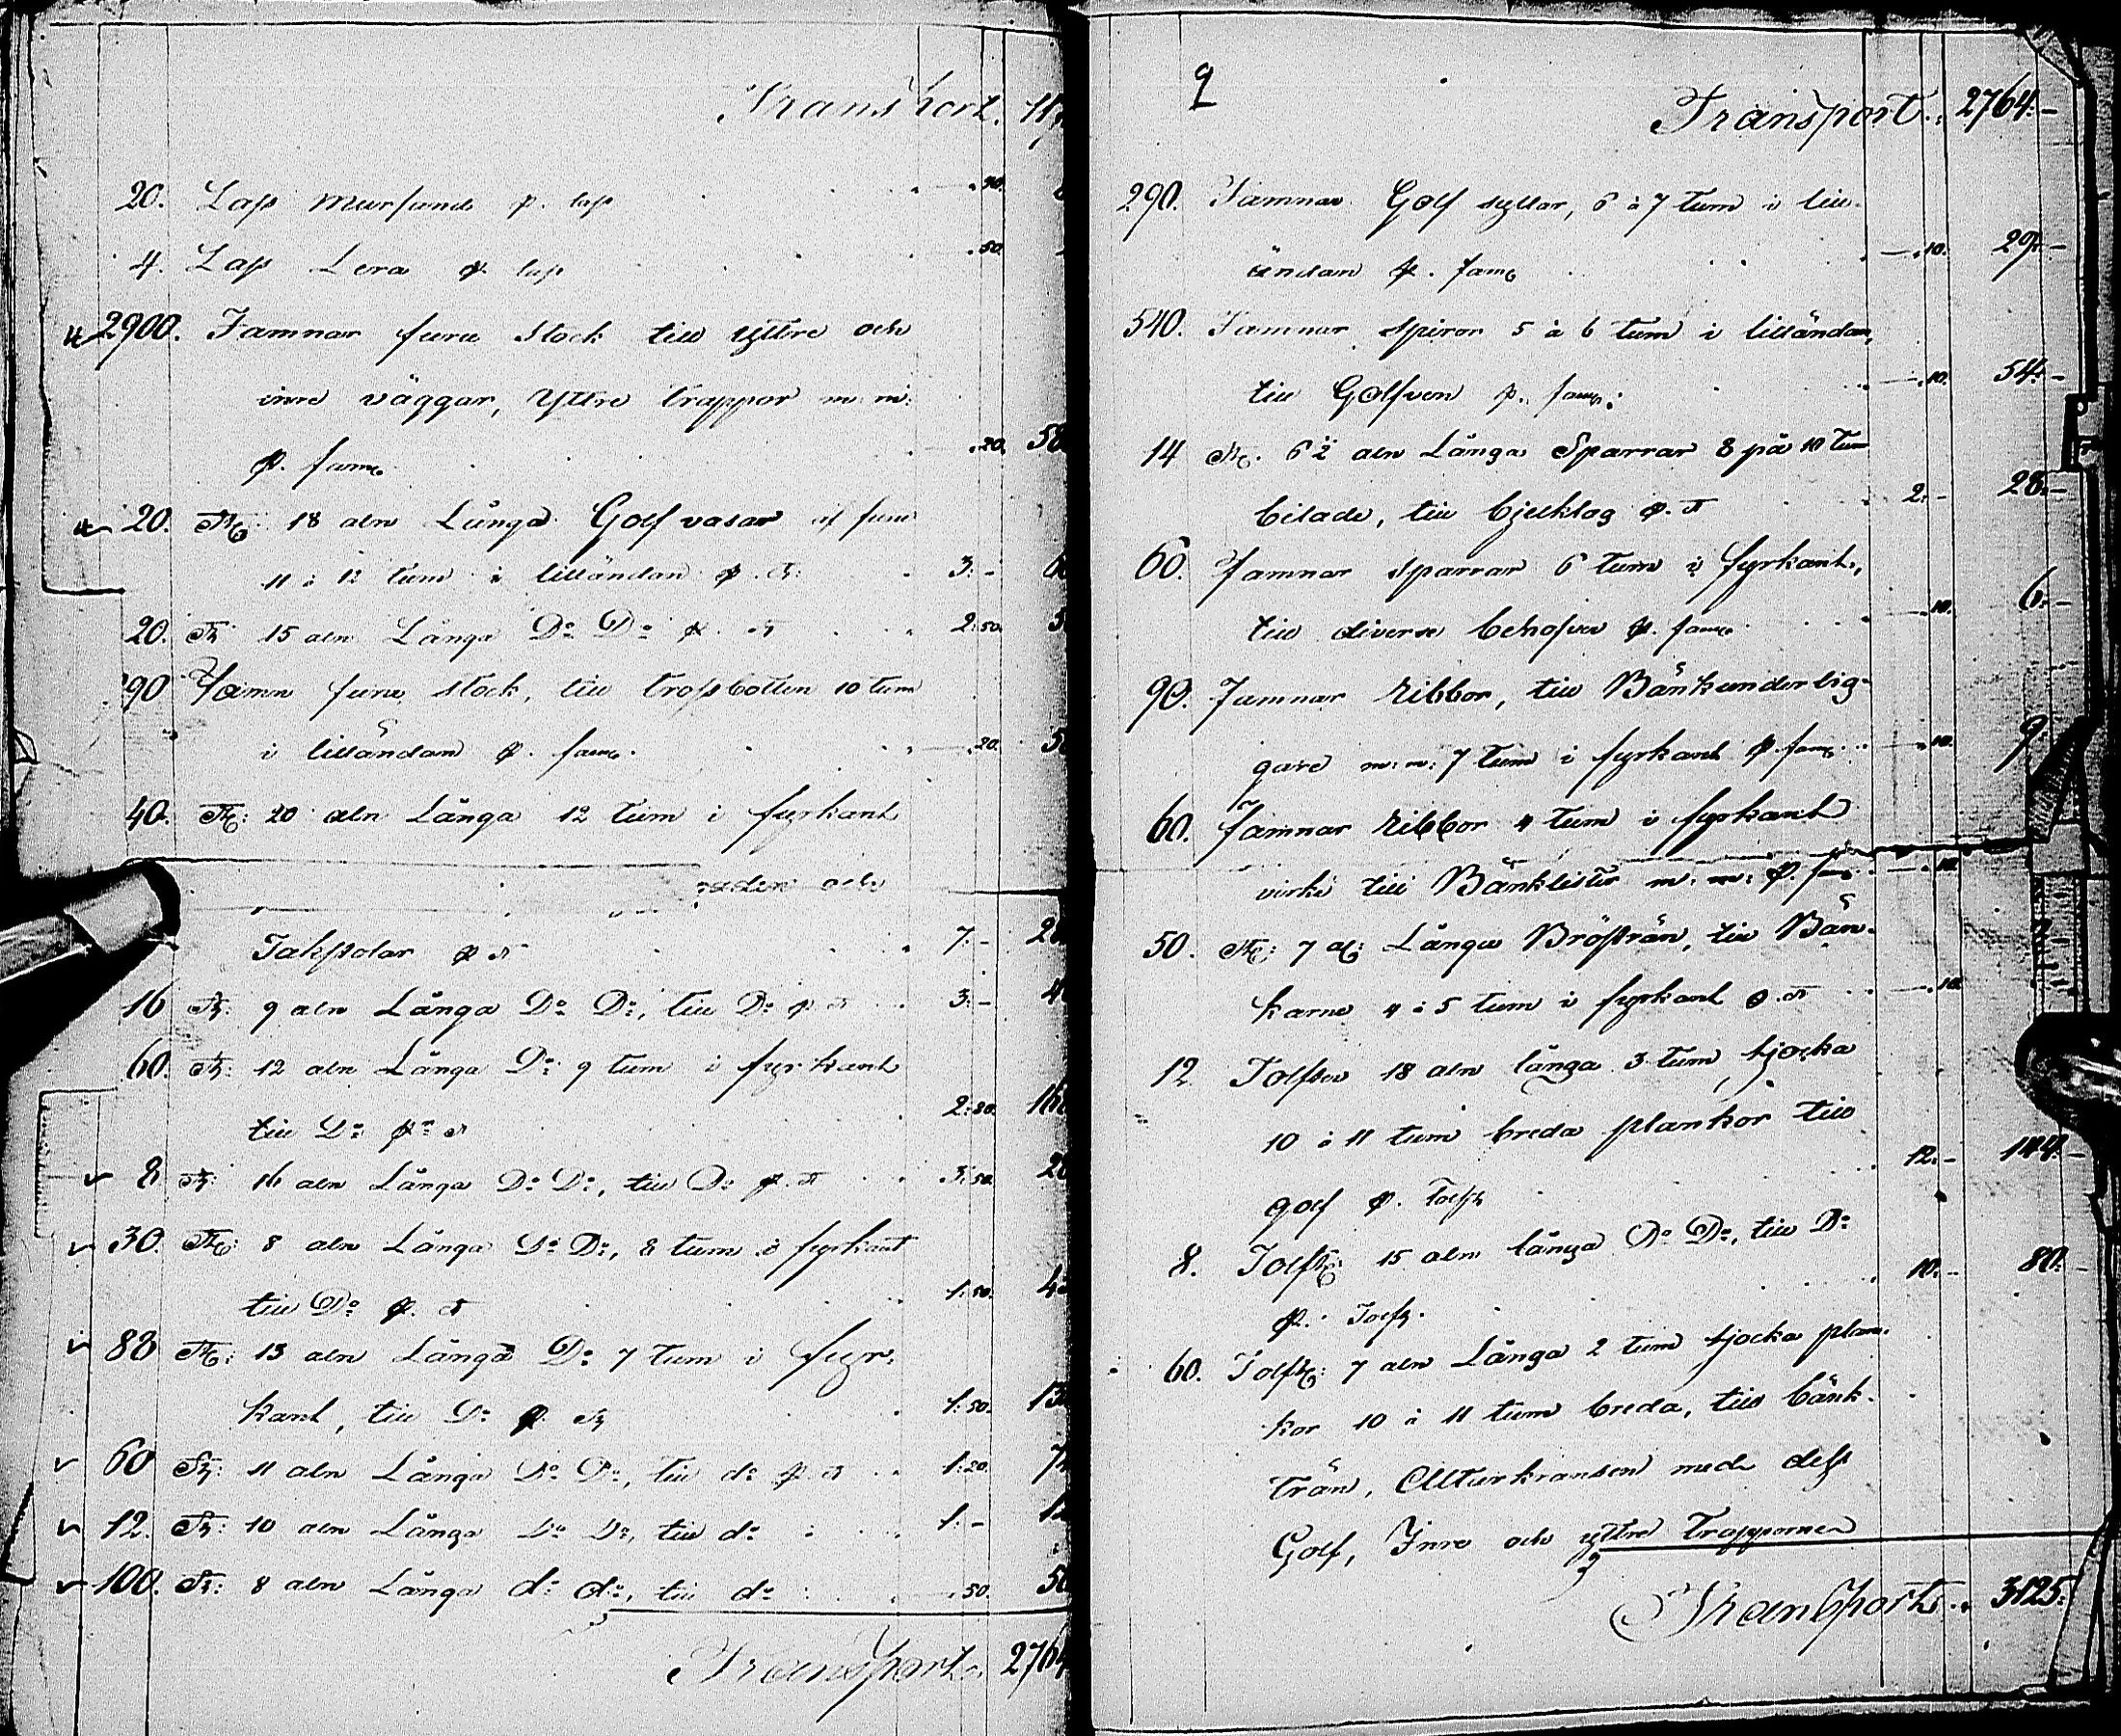 Transport. 11
20. Lass mursand p. lass . . . „ 30.
4. Lass Lera p. lass . . . „ 50.
2900. Famnar furu stock till yttre och
inre väggar, Yttre trappor m. m.
p. famn . . „ 20. 58
20. St: 18 aln Långa Golf vasar af furu
11 à 12 tum i lilländan p. st: . 3:- 6
20. St: 15 aln Långa Do Do p. st . . 2:50. 5
90 Famn furu stock, till trossbotten 10 tum
i lilländan p. famn. . . „ 20. 5
40. St: 20 aln Långa 12 tum i fyrkant
och
Takstolar p st . . 7:- 2
16 St: 9 aln Långa Do Do, till Do p. st . . 3:- 4
60. St: 12 aln Långa Do 9 tum i fyrkant
till Do p. st . 2:80. 16
8 St: 16 aln Långa Do Do, till Do p. st . . 3:50. 2
30. St: 8 aln Långa Do Do, 8 tum i fyrkant
till Do p. st . . 1:50. 4
88 St: 13 aln Långa Do 7 tum i fyr-
kant, till Do p. st . 1:50. 13
60 St: 11 aln Långa Do Do, till do p. st . . 1:20. 7
12. St: 10 aln Långa Do Do, till do . . 1:- 12
100. St: 8 aln Långa do do, till do . . „ 50. 50
Transport. 2764
9
Transport. 2764:-
290. Famnar Golf syllar, 6 à 7 tum i lill-
ändan p. famn . . „ 10. 29:-
540. Famnar spiror 5 à 6 tum i lilländan,
till Golfven p. famn: . „ 10. 54:-
14 St: 6½ aln Långa Sparrar 8 på 10 tum
bilade, till bjelklag p. st . 2:- 28:-
60. Famnar sparrar 6 tum i fyrkant,
till diverse behofver p. famn . . „ 10. 6:-
90. Famnar ribbor, till Bänkunderlig-
gare m: m: 7 tum i fyrkant p. famn . „ 10. 9
60. Famnar ribbor 4 tum i fyrkant
virke till Bänklister m: m: p. famn . „ 10.
50. St: 7 al: Långa Bröstträn, till Bän-
karne 4 à 5 tum i fyrkant p. st . . „ 10.
12 Tolfter 18 aln långa 3 tum tjocka
10 à 11 tum breda plankor till
golf p. Tolft . 12:- 144:-
8. Tolft: 15 aln långa Do Do, till Do
p. Tolft. . . 10:- 80:-
60. Tolft: 7 aln Långa 2 tum tjocka plan-
kor 10 à 11 tum breda, till bänk-
trän, Altarkransen med dess
Golf, Inre och yttre Trapporne
Transport. 3125: